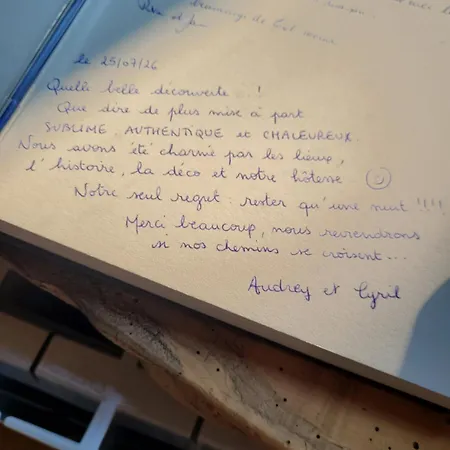 demmange de
le 25/07/26
Quelle belle découverte..!
Que dire de plus mise à part
SUBLIME, AUTHENTIQUE et CHALEUREUX.
Nous avons été charmé par les lieux,
l'histoire, la déco et notre hôtesse ☺
Notre seul regret : rester qu'une nuit !!!!
Merci beaucoup, nous reviendrons
si nos chemins se croisent...
Audrey et Cyril